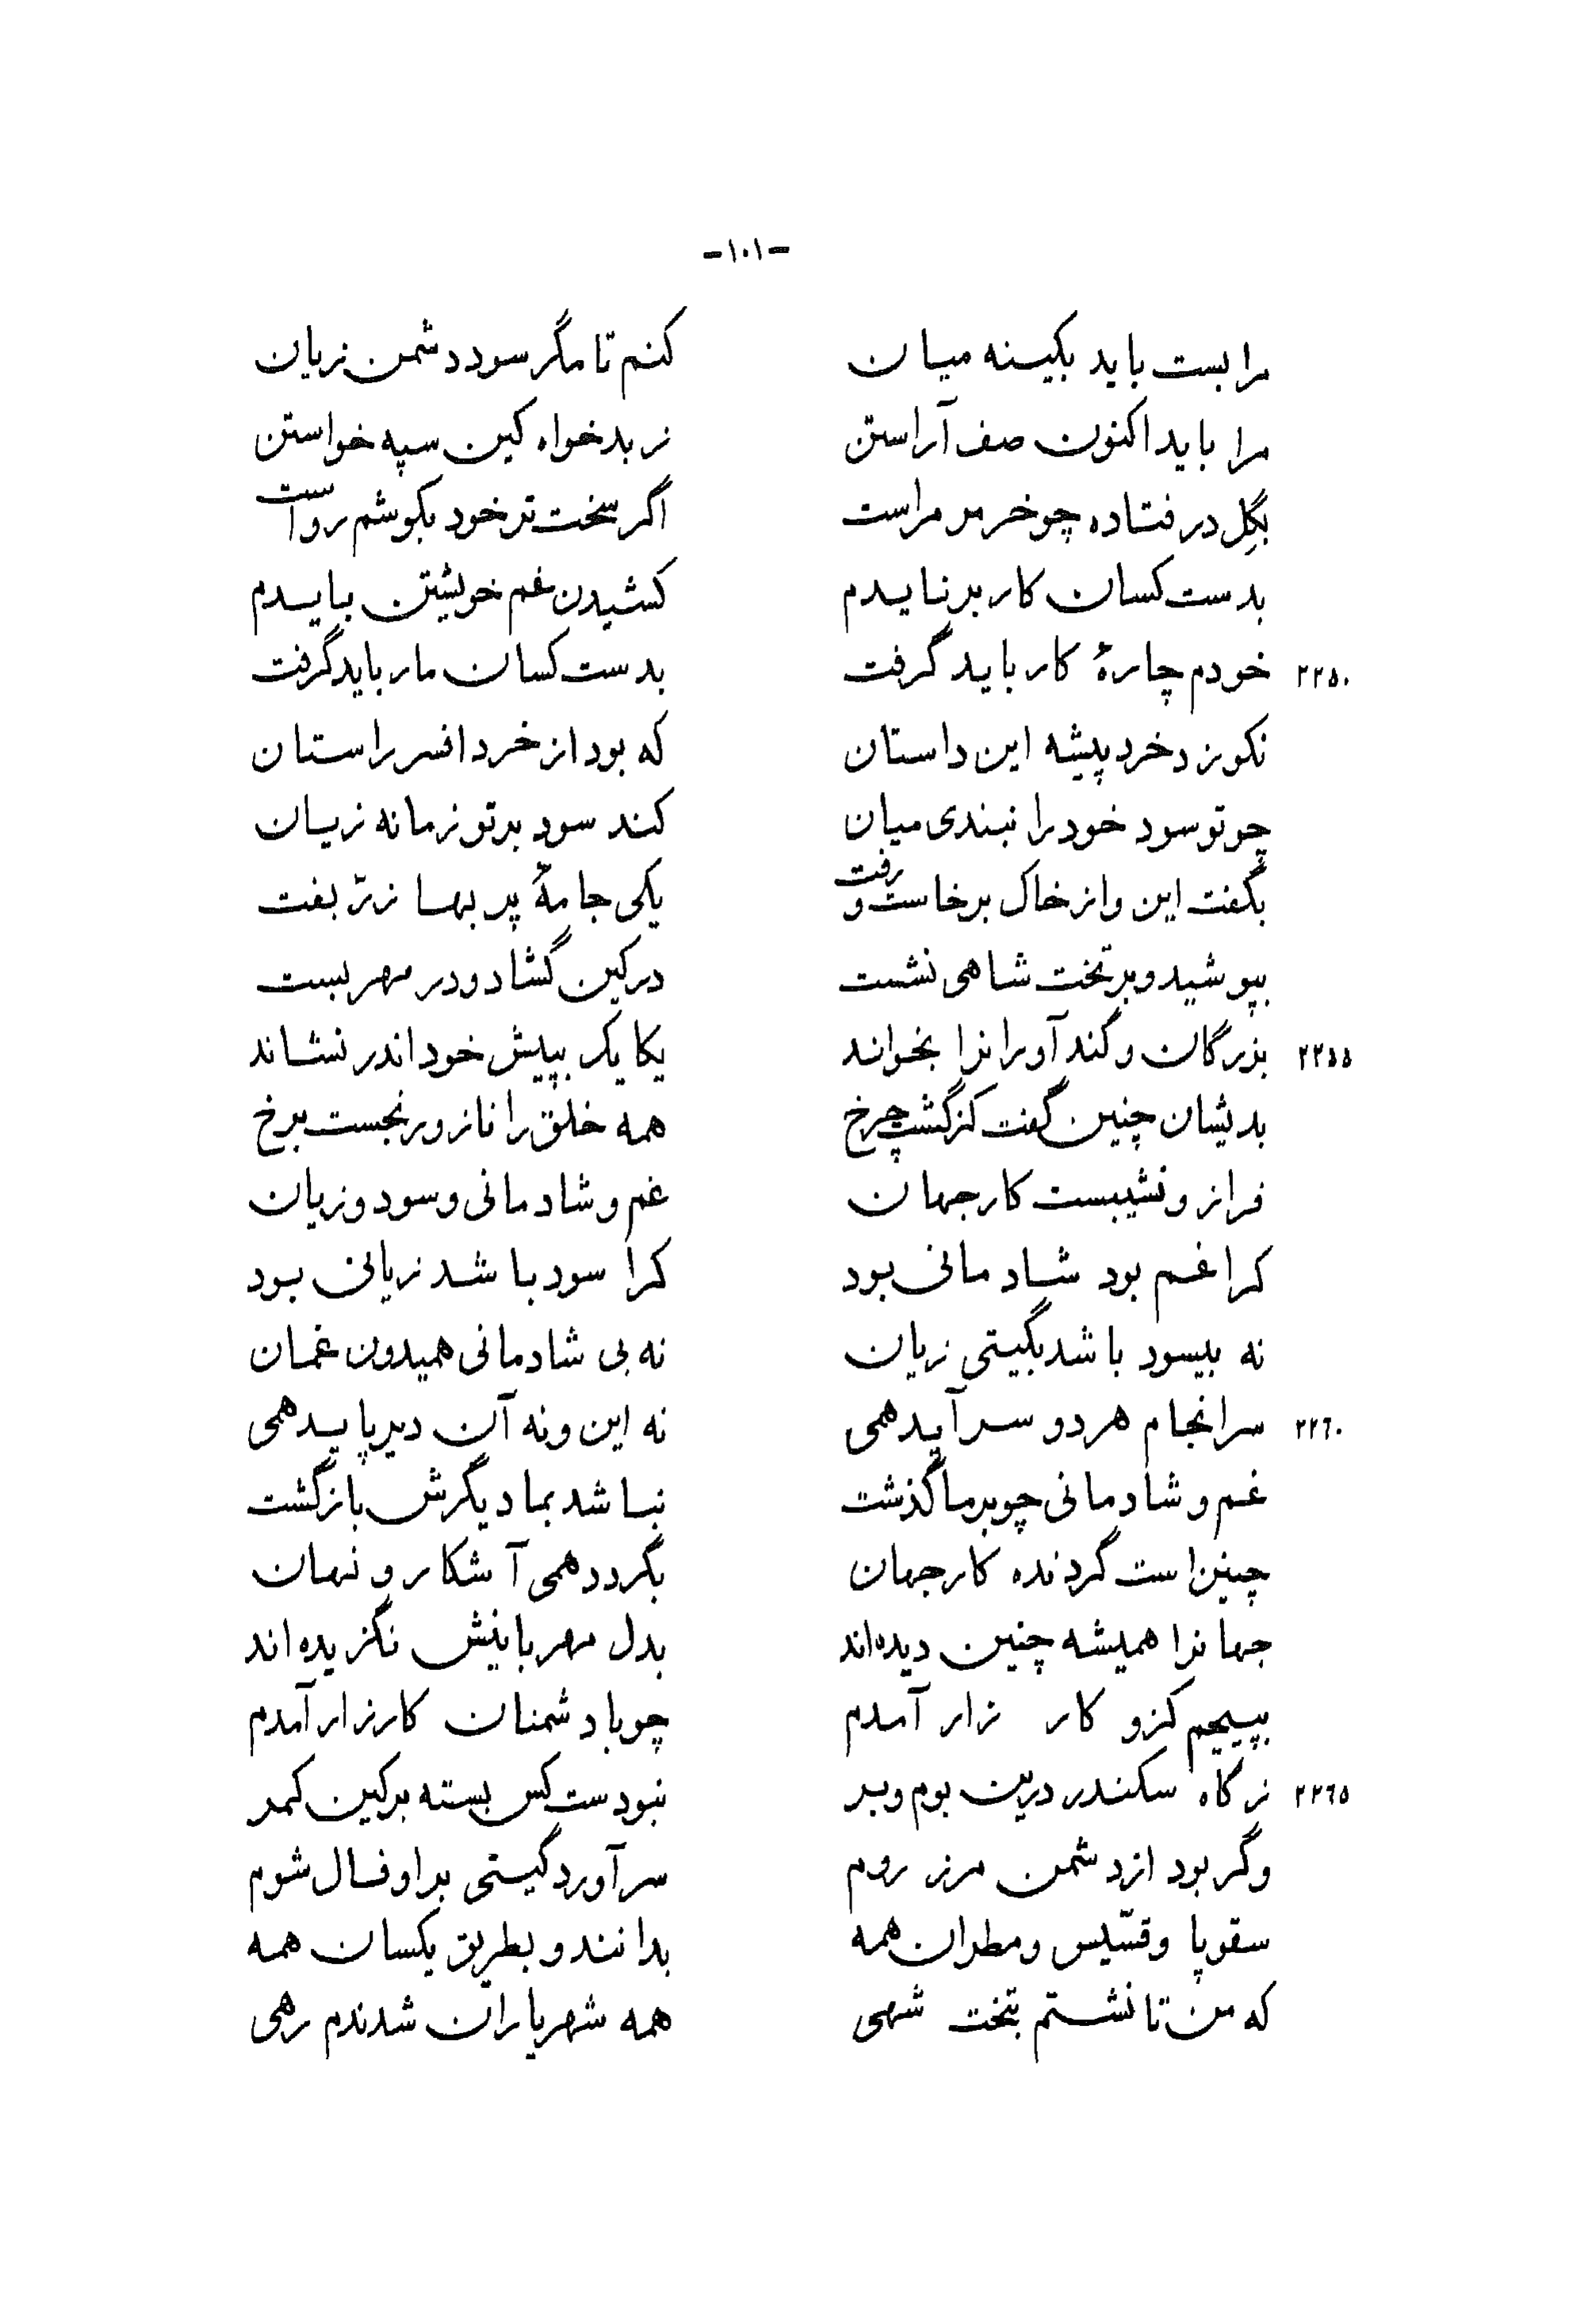 -۱۰۱-
مرا بست باید بکینه میان کنم تا مگر سود دشمن زیان
مرا باید اکنون صف آراستن ز بدخواه کین سپه خواستن
بگِل در فتاده چو خر مر مراست اگر سخت تر خود بکوشم رواست
بدست کسان کار برنایدم کشیدن غم خویشتن بایدم
۲۲۵۰ خودم چارهٔ کار باید گرفت بدست کسان مار باید گرفت
نکو زد خرد پیشه این داستان که بود از خرد افسر راستان
چو تو سود خود را نبندی میان کند سود بر تو زمانه زیان
بگفت این و از خاک برخاست و رفت یکی جامهٔ پر بها زرّ بفت
بپوشید و بر تخت شاهی نشست در کین گشاد و در مهر ببست
۲۲۵۵ بزرگان و گند آورانرا بخواند یکایک بپیش خود اندر نشاند
بدیشان چنین گفت کز گشت چرخ همه خلق را ناز و رنجست برخ
فراز و نشیبست کار جهان غم و شادمانی و سود و زیان
کرا غم بود شادمانی بود کرا سود باشد زیانی بود
نه بیسود باشد بگیتی زیان نه بی شادمانی همیدون غمان
۲۲٦۰ سرانجام هر دو سر آید همی نه این و نه آن دیر پاید همی
غم و شادمانی چو بر ما گذشت نباشد بما دیگرش بازگشت
چنین است گردنده کار جهان بگردد همی آشکار و نهان
جهانرا همیشه چنین دیده‌اند بدل مهربانیش نگزیده‌اند
بپیچیم کزو کار زار آمدم چو با دشمنان کارزار آمدم
۲۲٦۵ ز گاه سکندر درین بوم و بر نبودست کس بسته بر کین کمر
وگر بود از دشمن مرز روم سر آورد گیتی بر او فال شوم
سقوپا و قسّیس و مطران همه بدانند و بطریق یکسان همه
که من تا نشستم بتخت شهی همه شهریاران شدندم رهی